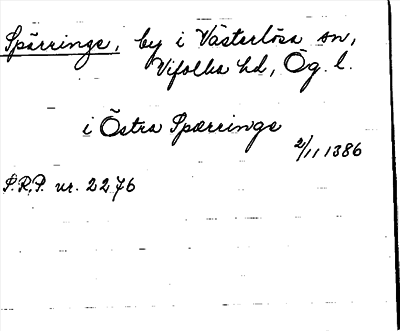 Spärringe, by i Västerlösa sn,
Vifolka hd, Ög. l.
i Östra Spærringe
2/11 1386
S.R.P. nr. 2276